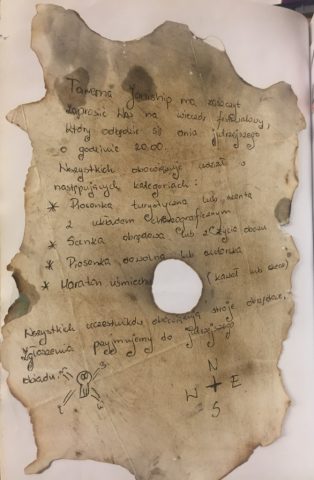 Tawerna Yowship ma zaszczyt
zaprosić Was na wieczór festiwalowy,
który odbędzie się dnia jutrzejszego
o godzinie 20.00.
Wszystkich obowiązuje udział w
następujących kategoriach:
* Piosenka turystyczna lub szanta
z układem choreograficznym
* Scenka obrzędowa lub z życia obozu
* Piosenka dowolna lub autorska
* Maraton uśmiechu (kawał lub skecz)
Wszystkich uczestników obowiązują stroje
Zgłoszenia przyjmujemy do jutrzejszego
obiadu.
N
W E
S